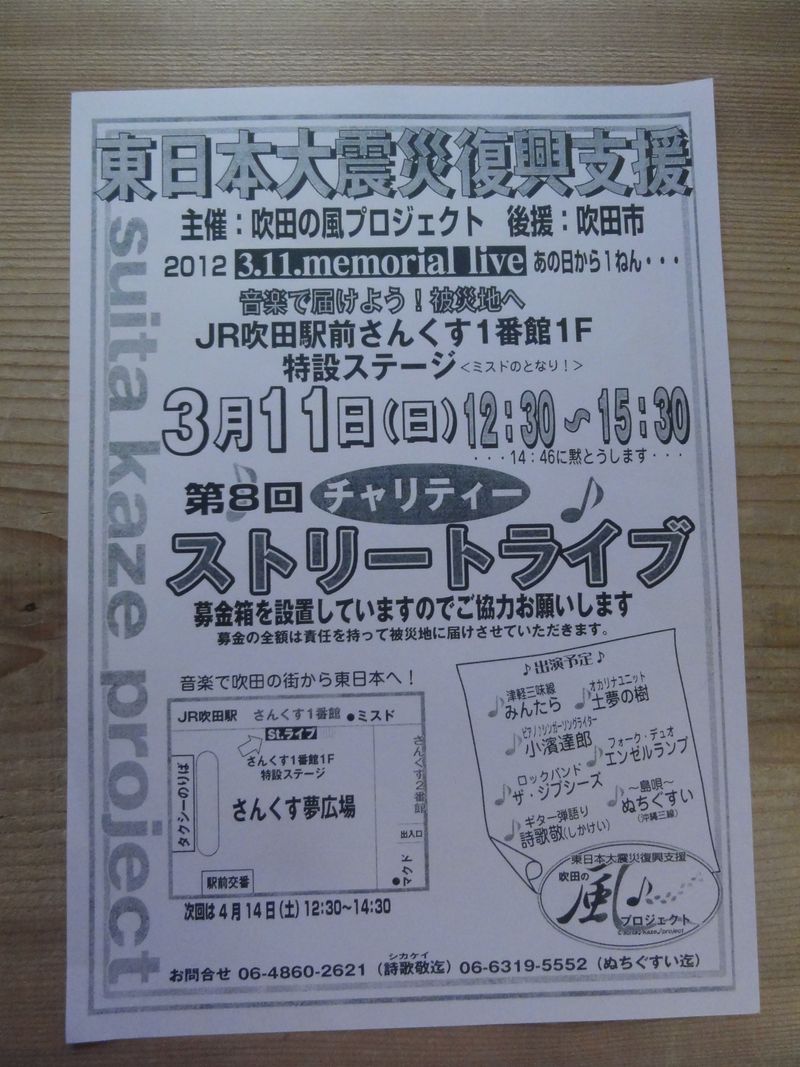 東日本大震災復興支援
主催：吹田の風プロジェクト 後援：吹田市
2012 3.11.memorial live あの日から1ねん・・・
音楽で届けよう！被災地へ
JR吹田駅前さんくす1番館1F
特設ステージ<ミスドのとなり！>
3月11日(日)12:30〜15:30
・・・14：46に黙とうします・・・
第8回 チャリティー
ストリートライブ
募金箱を設置していますのでご協力お願いします
募金の全額は責任を持って被災地に届けさせていただきます。
suita kaze project
音楽で吹田の街から東日本へ！
JR吹田駅 さんくす1番館 ●ミスド
St.ライブ
さんくす1番館1F
特設ステージ
さんくす夢広場
タクシーのりば
さんくす2番館
出入口
●マクド
駅前交番
次回は4月14日(土)12:30〜14:30
♪出演予定♪
津軽三味線
みんたら
オカリナユニット
土夢の樹
ピアノ♪シンガーソングライター
小濱達郎
フォーク・デュオ
エンゼルランプ
ロックバンド
ザ・ジプシーズ
〜島唄〜
ぬちぐすい
(沖縄三線)
ギター弾語り
詩歌敬(しかけい)
東日本大震災復興支援
吹田の
風
プロジェクト
お問合せ 06-4860-2621（詩歌敬迄）06-6319-5552（ぬちぐすい迄）
シカケイ